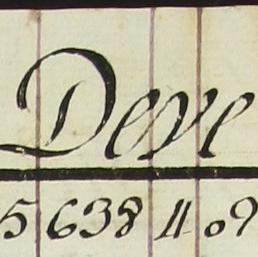 Deve
5 638 4 09